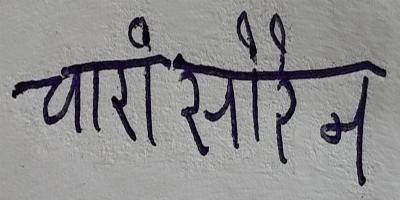 चारो सोरेन